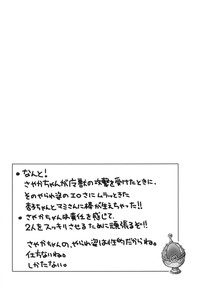 ・なんと!
さやかちゃんが魔獣の攻撃を受けたときに、
そのやられ姿のエロさにムラッときた
杏子ちゃんとマミさんに棒が生えちゃった!!
・さやかちゃんは責任を感じて、
2人をスッキリさせるために頑張るぞ!!
さやかちゃんの、やられ姿は性的だからね。
仕方ないね。
しかたない。